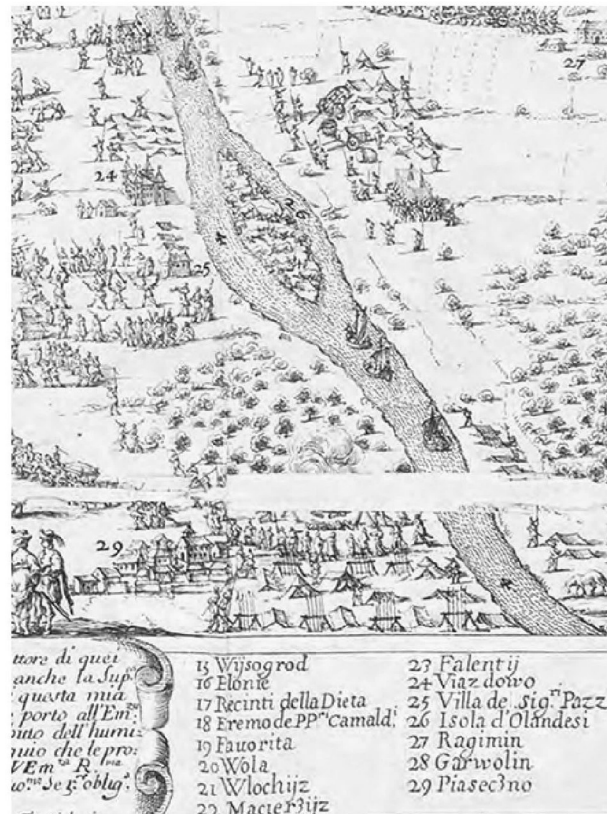 27
24
26
25
29
ttore di quei
anche la Sup.
questa mia
porto all'Em.
dell'humi
quio che le pro:
VEm.za R.
Se 5.r oblig.
15 Wijsogrod
16 Elonie
17 Recinti della Dieta
18 Eremo de PP.ri Camald:
19 Fauorita
20 Wola
21 Wlochijz
22 Macier3ijz
23 Falentij
24 Viazdowo
25 Villa de sig.ri Pazz
26 Isola d'Olandesi
27 Ragimin
28 Garwolin
29 Piasec3no